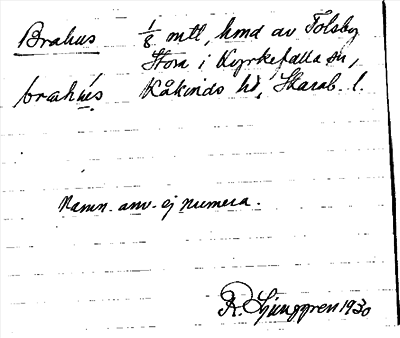 Brahus 1/8 mtl, hmd av Tolsby
Stora i Kyrkefalla sn,
brahús Kåkinds hd, Skarab. l.
Namn. anv. ej numera.
R. Ljunggren 1930